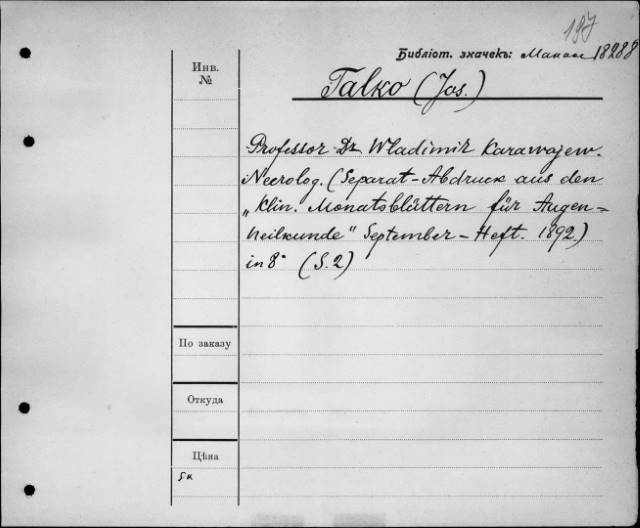 197
Библіот. значекъ: Макал 18288
Инв.
№
Talko (Jos.)
Professor Dr Wladimir Karawajew.
Necrolog. (Separat-Abdruck aus den
„Klin. Monatsblättern für Augen=
heilkunde" September-Heft. 1892.)
in 8° (S. 2)
По заказу
Откуда
Цѣна
5к